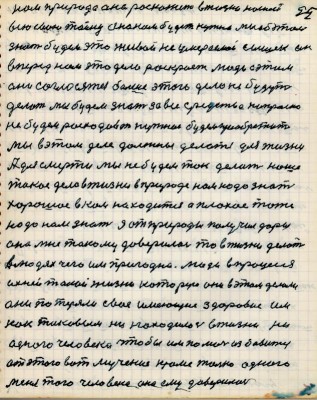 нам природа она роскожит в жизни нашей
вью свою тайну она нам будет нужна мы об этом
знат будем это живой не умераемой он
вперед нам это дело раскроет люди с этим
они согласутся больше этого дела не будут
делать мы будем знат за все средства напрасно
не будем росходоват нужное будем приобретат
мы в этом деле должны делать для жизни
А для смерти мы не будем так делат наше
такое дело в жизни в природе нам надо знат
хорошое в ком находится а плохое тоже
надо нам знат я от природы получил дары
она мне такому доверилас то в жизни делат
в людях чего им пригодна. Люди в процессе
ихней такой жизни которую они в этом делали
они потеряли свое имеющие здоровье им
как таковым ни находилос в жизни ни
одного человека чтобы им помог избавит
от этого вот мучение кроме толко одного
меня того человека она ему доверилас